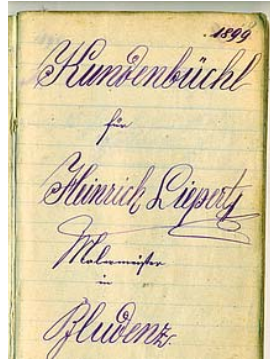 1899
Kundenbüchl
für
Heinrich Liepert
Malermeister
in
Bludenz.